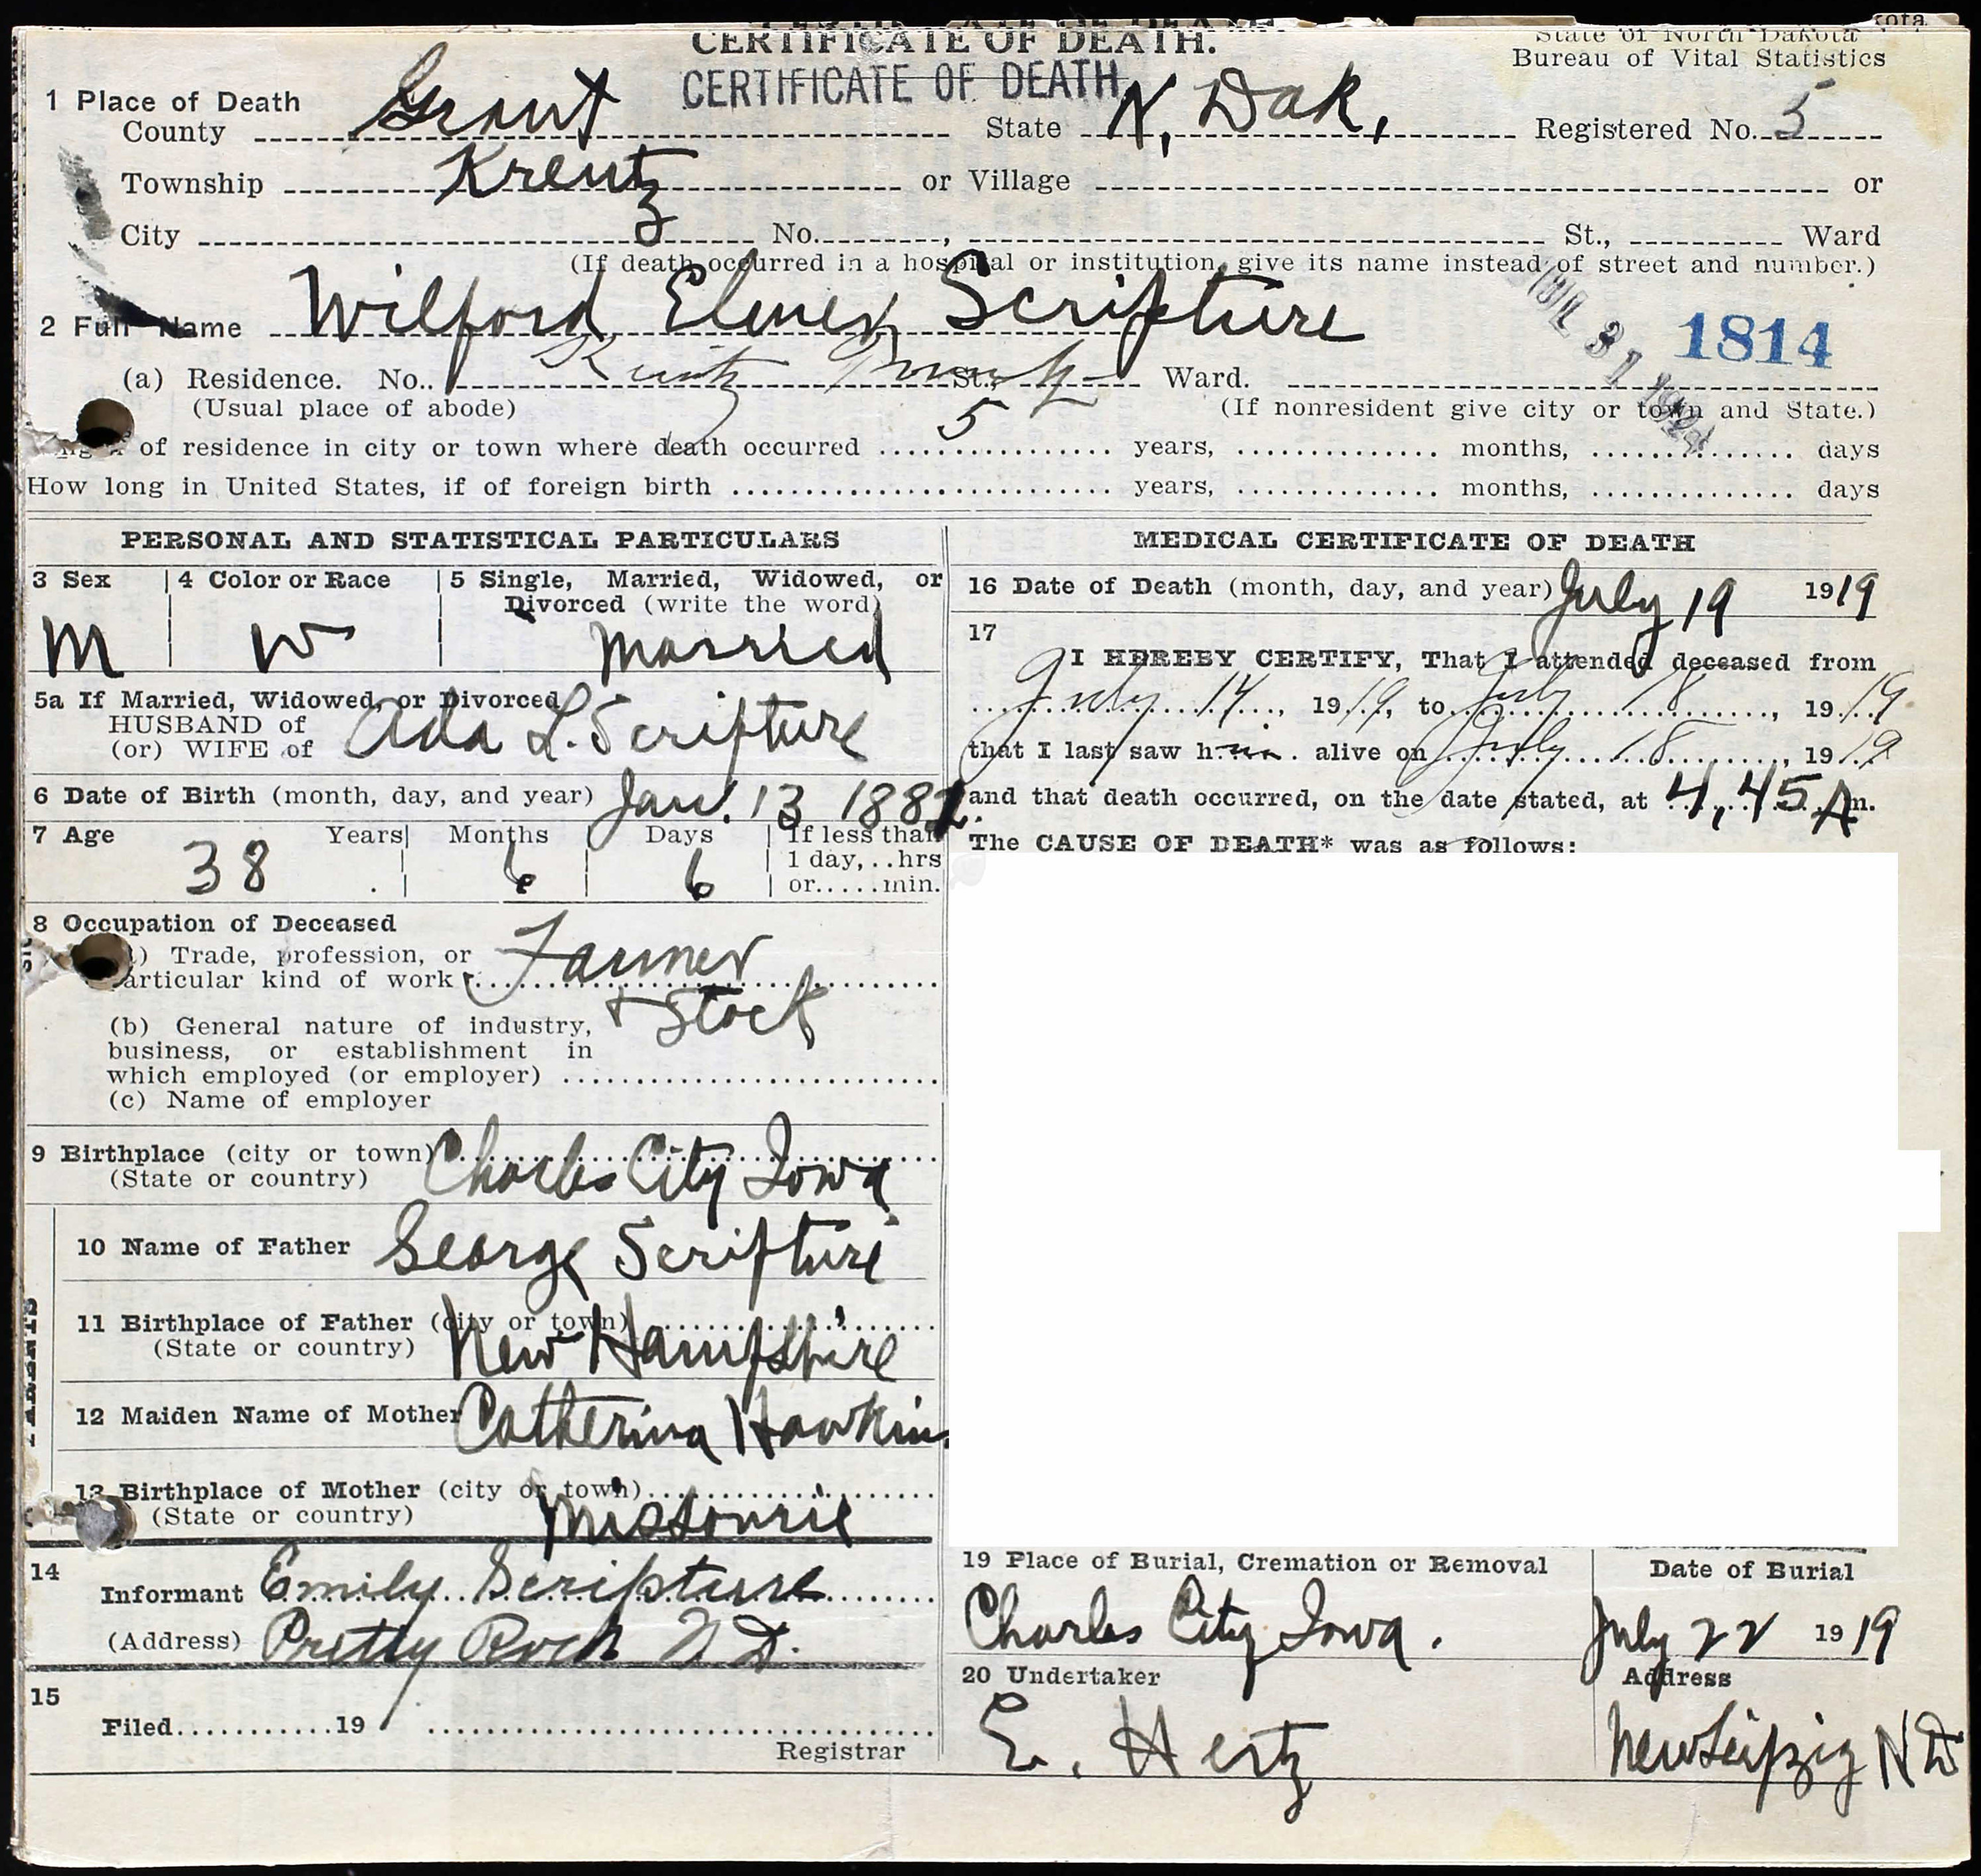 CERTIFICATE OF DEATH.
State of North Dakota
Bureau of Vital Statistics
CERTIFICATE OF DEATH
1 Place of Death
County Grant State N. Dak. Registered No. 5
Township Krentz or Village or
City No. , St., Ward
(If death occurred in a hospital or institution, give its name instead of street and number.)
2 Full Name Wilford Elmer Scripture
JUL 31 1814
(a) Residence. No. St., Ward.
(Usual place of abode) (If nonresident give city or town and State.)
of residence in city or town where death occurred 5 years, months, days
How long in United States, if of foreign birth years, months, days
PERSONAL AND STATISTICAL PARTICULARS
3 Sex 4 Color or Race 5 Single, Married, Widowed, or
Divorced (write the word)
M W Married
5a If Married, Widowed, or Divorced
HUSBAND of
(or) WIFE of Ada L. Scripture
6 Date of Birth (month, day, and year) Jan. 13 1881
7 Age Years Months Days If less than
1 day, ..hrs
38 6 6 or.....min.
8 Occupation of Deceased
Trade, profession, or
particular kind of work Farmer
+ Stock
(b) General nature of industry,
business, or establishment in
which employed (or employer)
(c) Name of employer
9 Birthplace (city or town)
(State or country) Charles City Iowa
PARENTS
10 Name of Father George Scripture
11 Birthplace of Father (city or town)
(State or country) New Hampshire
12 Maiden Name of Mother Catherina Hawkins
13 Birthplace of Mother (city or town)
(State or country) Missourie
14
Informant Emily Scripture
(Address) Pretty Rock N D.
15
Filed 19
Registrar
MEDICAL CERTIFICATE OF DEATH
16 Date of Death (month, day, and year) July 19 1919
17
I HEREBY CERTIFY, That I attended deceased from
July 14, 1919, to July 18, 1919
that I last saw him alive on July 18, 1919
and that death occurred, on the date stated, at 4.45 A m.
The CAUSE OF DEATH* was as follows:
19 Place of Burial, Cremation or Removal Date of Burial
Charles City Iowa. July 22 1919
20 Undertaker Address
E. Hertz New Leipzig N D